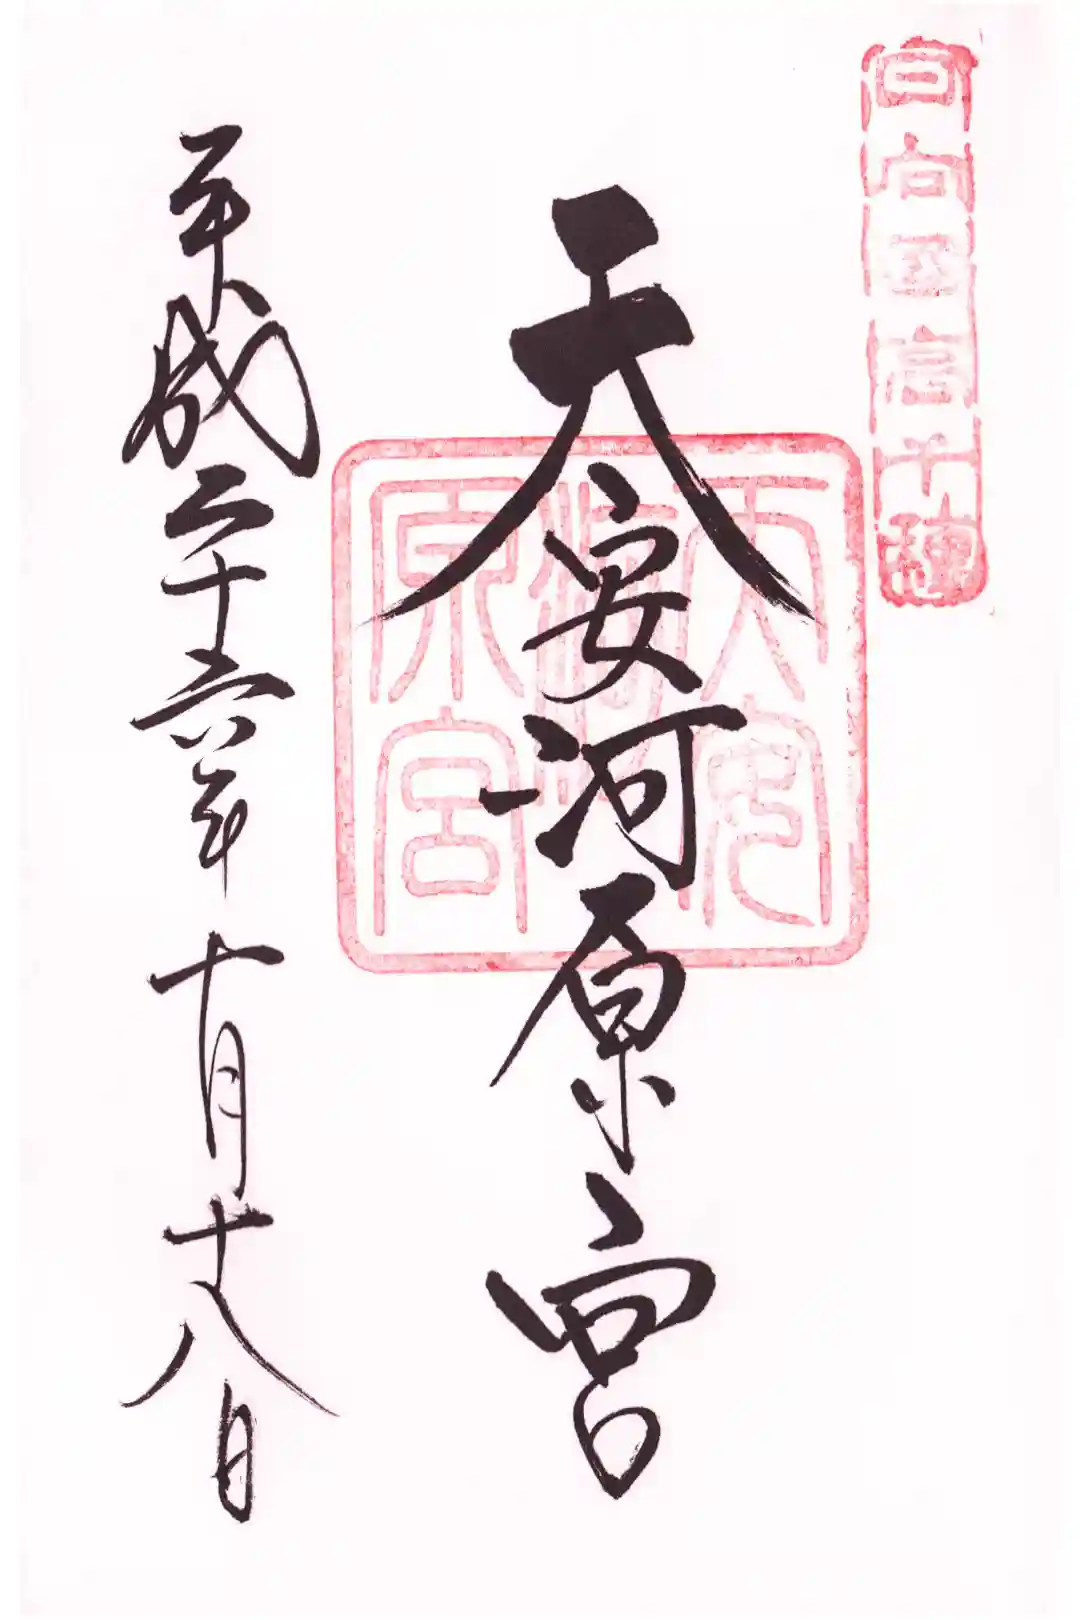 日向国高千穂
天安河原宮
天安河原宮
平成二十六年十月十八日